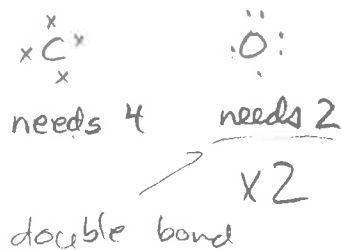 C O
needs 4 needs 2
x2
double bond